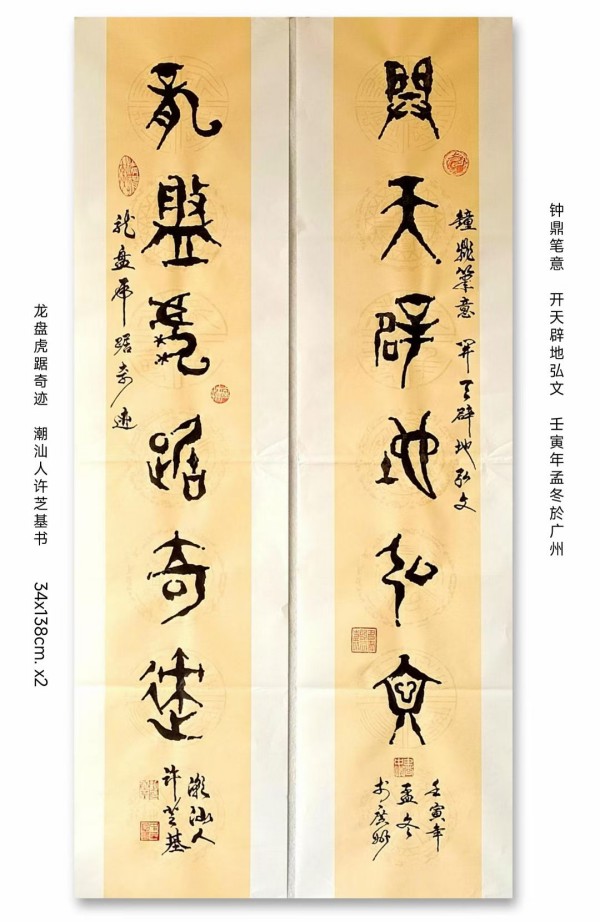 钟鼎笔意 开天辟地弘文 壬寅年孟冬於广州
鐘鼎筆意 開天辟地弘文
開天辟地弘文
壬寅年
孟冬
於廣州
龍盤虎踞奇迹
龙盘虎踞奇迹
潮汕人
许芝基
龙盘虎踞奇迹 潮汕人许芝基书 34x138cm. x2